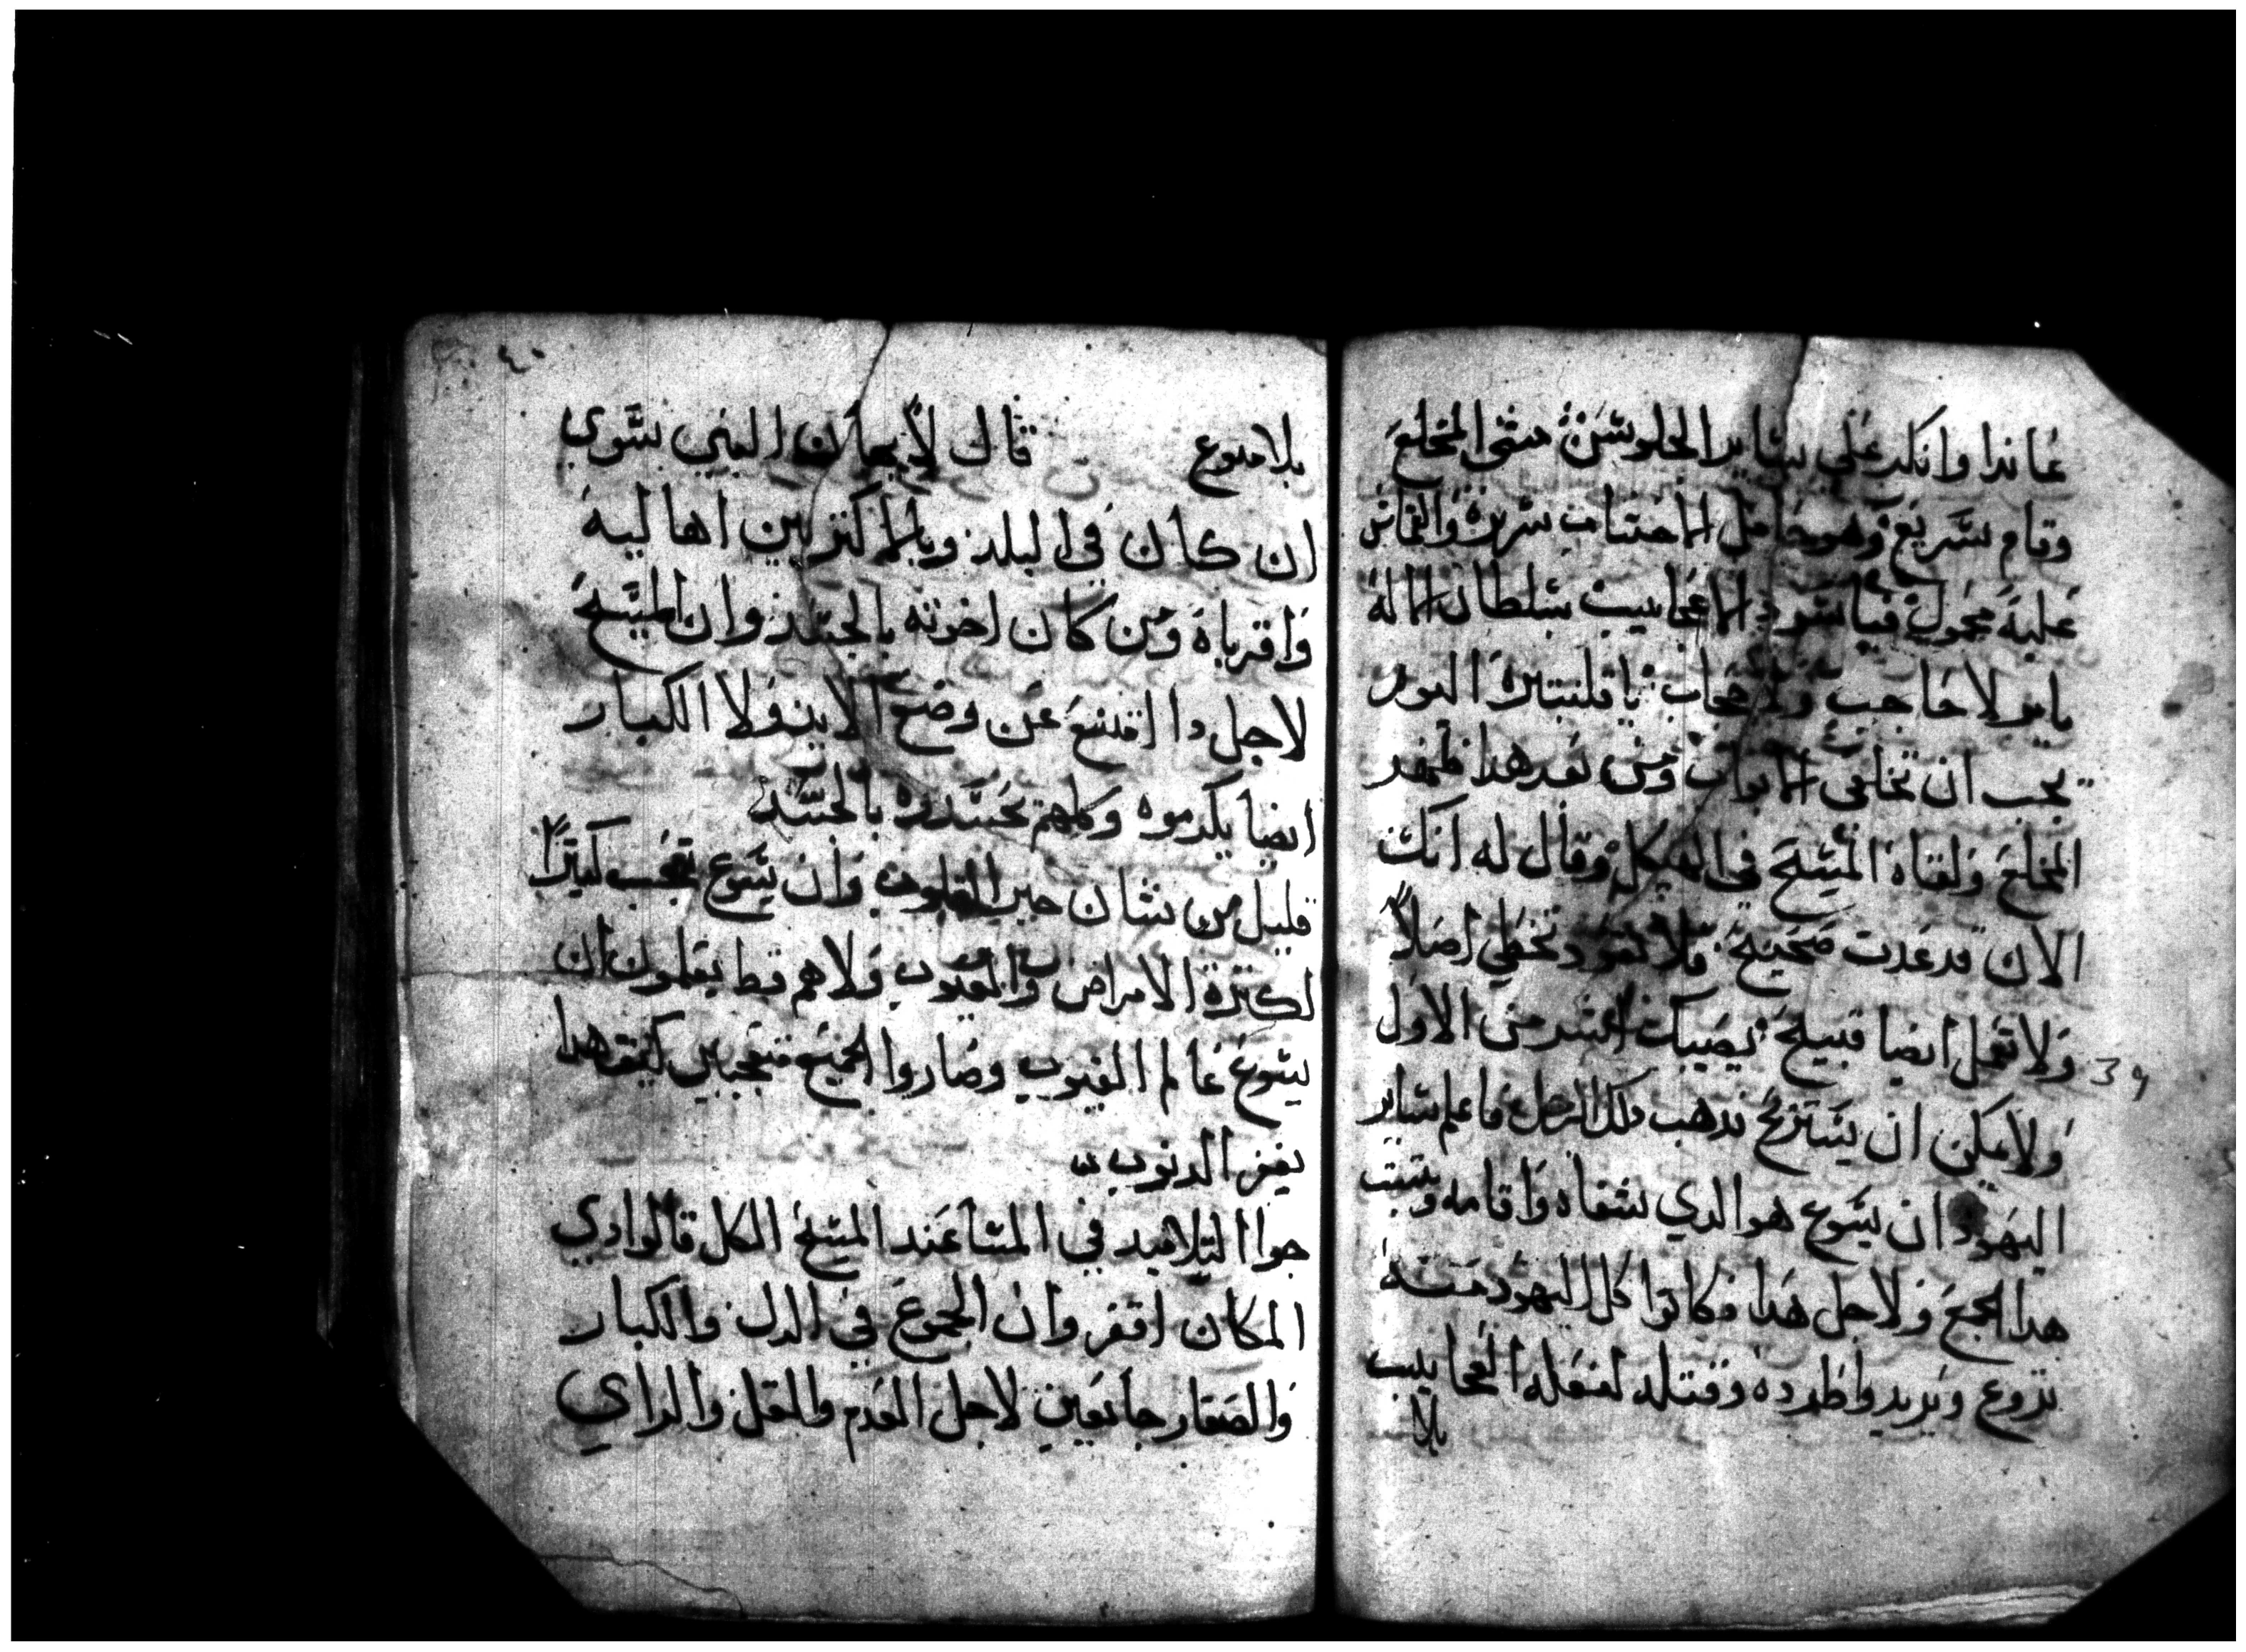 عاندا وانكر علي ساير الجلوس مشي المخلع
وقام سريع وهو حامل الاخشاب سريره والقماش
عليه محمول فيا سود الاعجايب سلطان الاله
يا بولا حاجب ولا حجاب يا قلنبتيره اليوم
يجب ان تخلعي الابواب ومن بعد هدا ظهر
المخلع ولقاه المسيح في الهيكل وقال له انك
الان قد عدت صحيح فلا تعود تخطي اصلاً
ولا تعمل ايضا قبيح يصيبك اشر من الاول
39
ولا يمكن ان يستريح فدهب دلك الرجل فاعلم ساير
اليهود ان يسوع هو الدي شفاه واقامه وسبت
هدا الجمع ولاجل هدا فكانوا كل اليهود منه
تروع ويريدوا طرده وقتله لفعله العجايب
بلا
٤٠
بلا منوع قال لا يهان النبي يسوي
ان كان في البلد وبالاكتر بين اهاليه
واقرباه ومن كان اخوته بالجسد وان المسيح
لاجل دا اقتنع عن وضع الايد ولا الكبار
ايضا يكرموه وكلهم تحسده بالحسد
قليل من شان جبر القلوب وان يسوع تعجب كتيرًا
لكترة الامراض والعيوب ولا هم قط يعلمون ان
يسوع عالم الغيوب وصاروا الجميع متعجبين كيف هدا
يغفر الدنوب
جوا التلاميد في المسا عند المسيح الكل قالوا دي
المكان اقفر وان الجموع في الدل والكبار
والصغار جايعين لاجل العدم والقل والراي